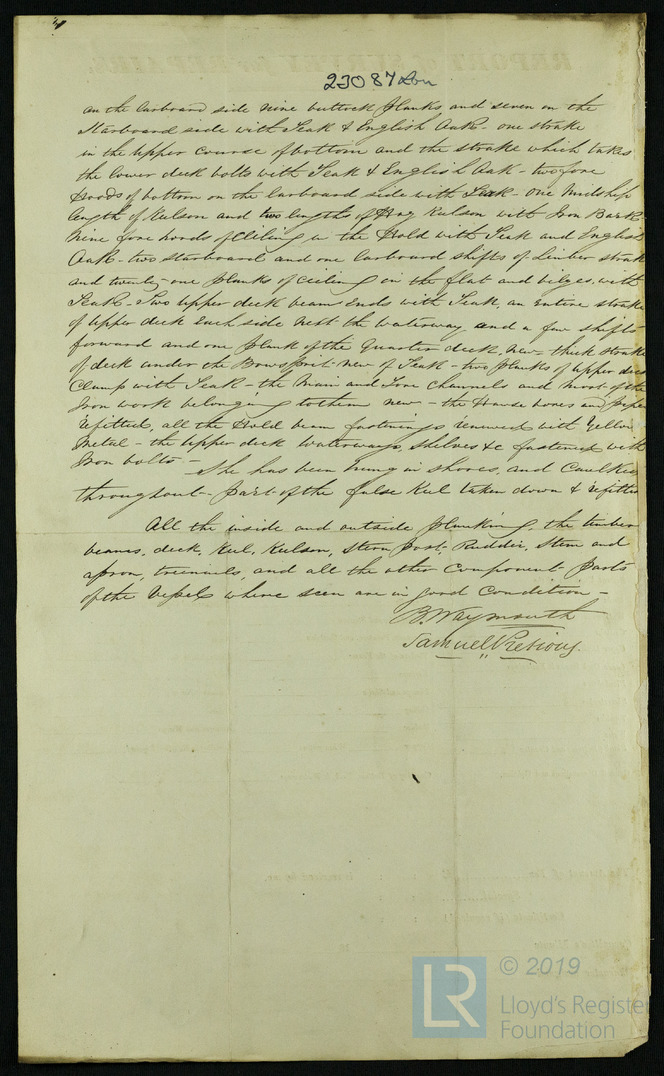 23087 Lon
on the larboard side nine buttock planks and seven on the
Starboard side with Teak & English Oak - one strake
in the upper course of bottom and the strake which takes
the lower deck bolts with Teak & English Oak - two fore
Hoods of bottom on the larboard side with Teak - one Midship
length of Kelson and two lengths of Keelson with Iron Bark
Nine fore hoods of Ceiling in the Hold with Teak and English
Oak - two starboard and one larboard shifts of Limber strake
and twenty-one planks of ceiling on the flat and bilges, with
Teak - Two upper deck beam Ends with Teak, an entire strake
of upper deck each side next the waterway, and a few shifts
forward and one plank of the Quarter deck, new - thick strake
of deck under the Bowsprit new of Teak - two planks of upper deck
Clamp with Teak - the Main and Fore Channels and most of the
Iron work belonging to them new - the Hawse hoses and
refitted, all the Hold beam fastenings renewed with Yellow
Metal - the upper deck waterways, shelves &c fastened with
Iron bolts - She has been hung in shores, and Caulked
throughout - part of the false Keel taken down & refitted
All the inside and outside planking, the timbers
beams, deck, Keel, Keelson, Stern post, Rudder, Stem and
apron, treenails, and all the other Component parts
of the Vessel where seen are in good Condition -
B. Waymouth
Samuel Pretious
© 2019
LR
Lloyd's Register
Foundation